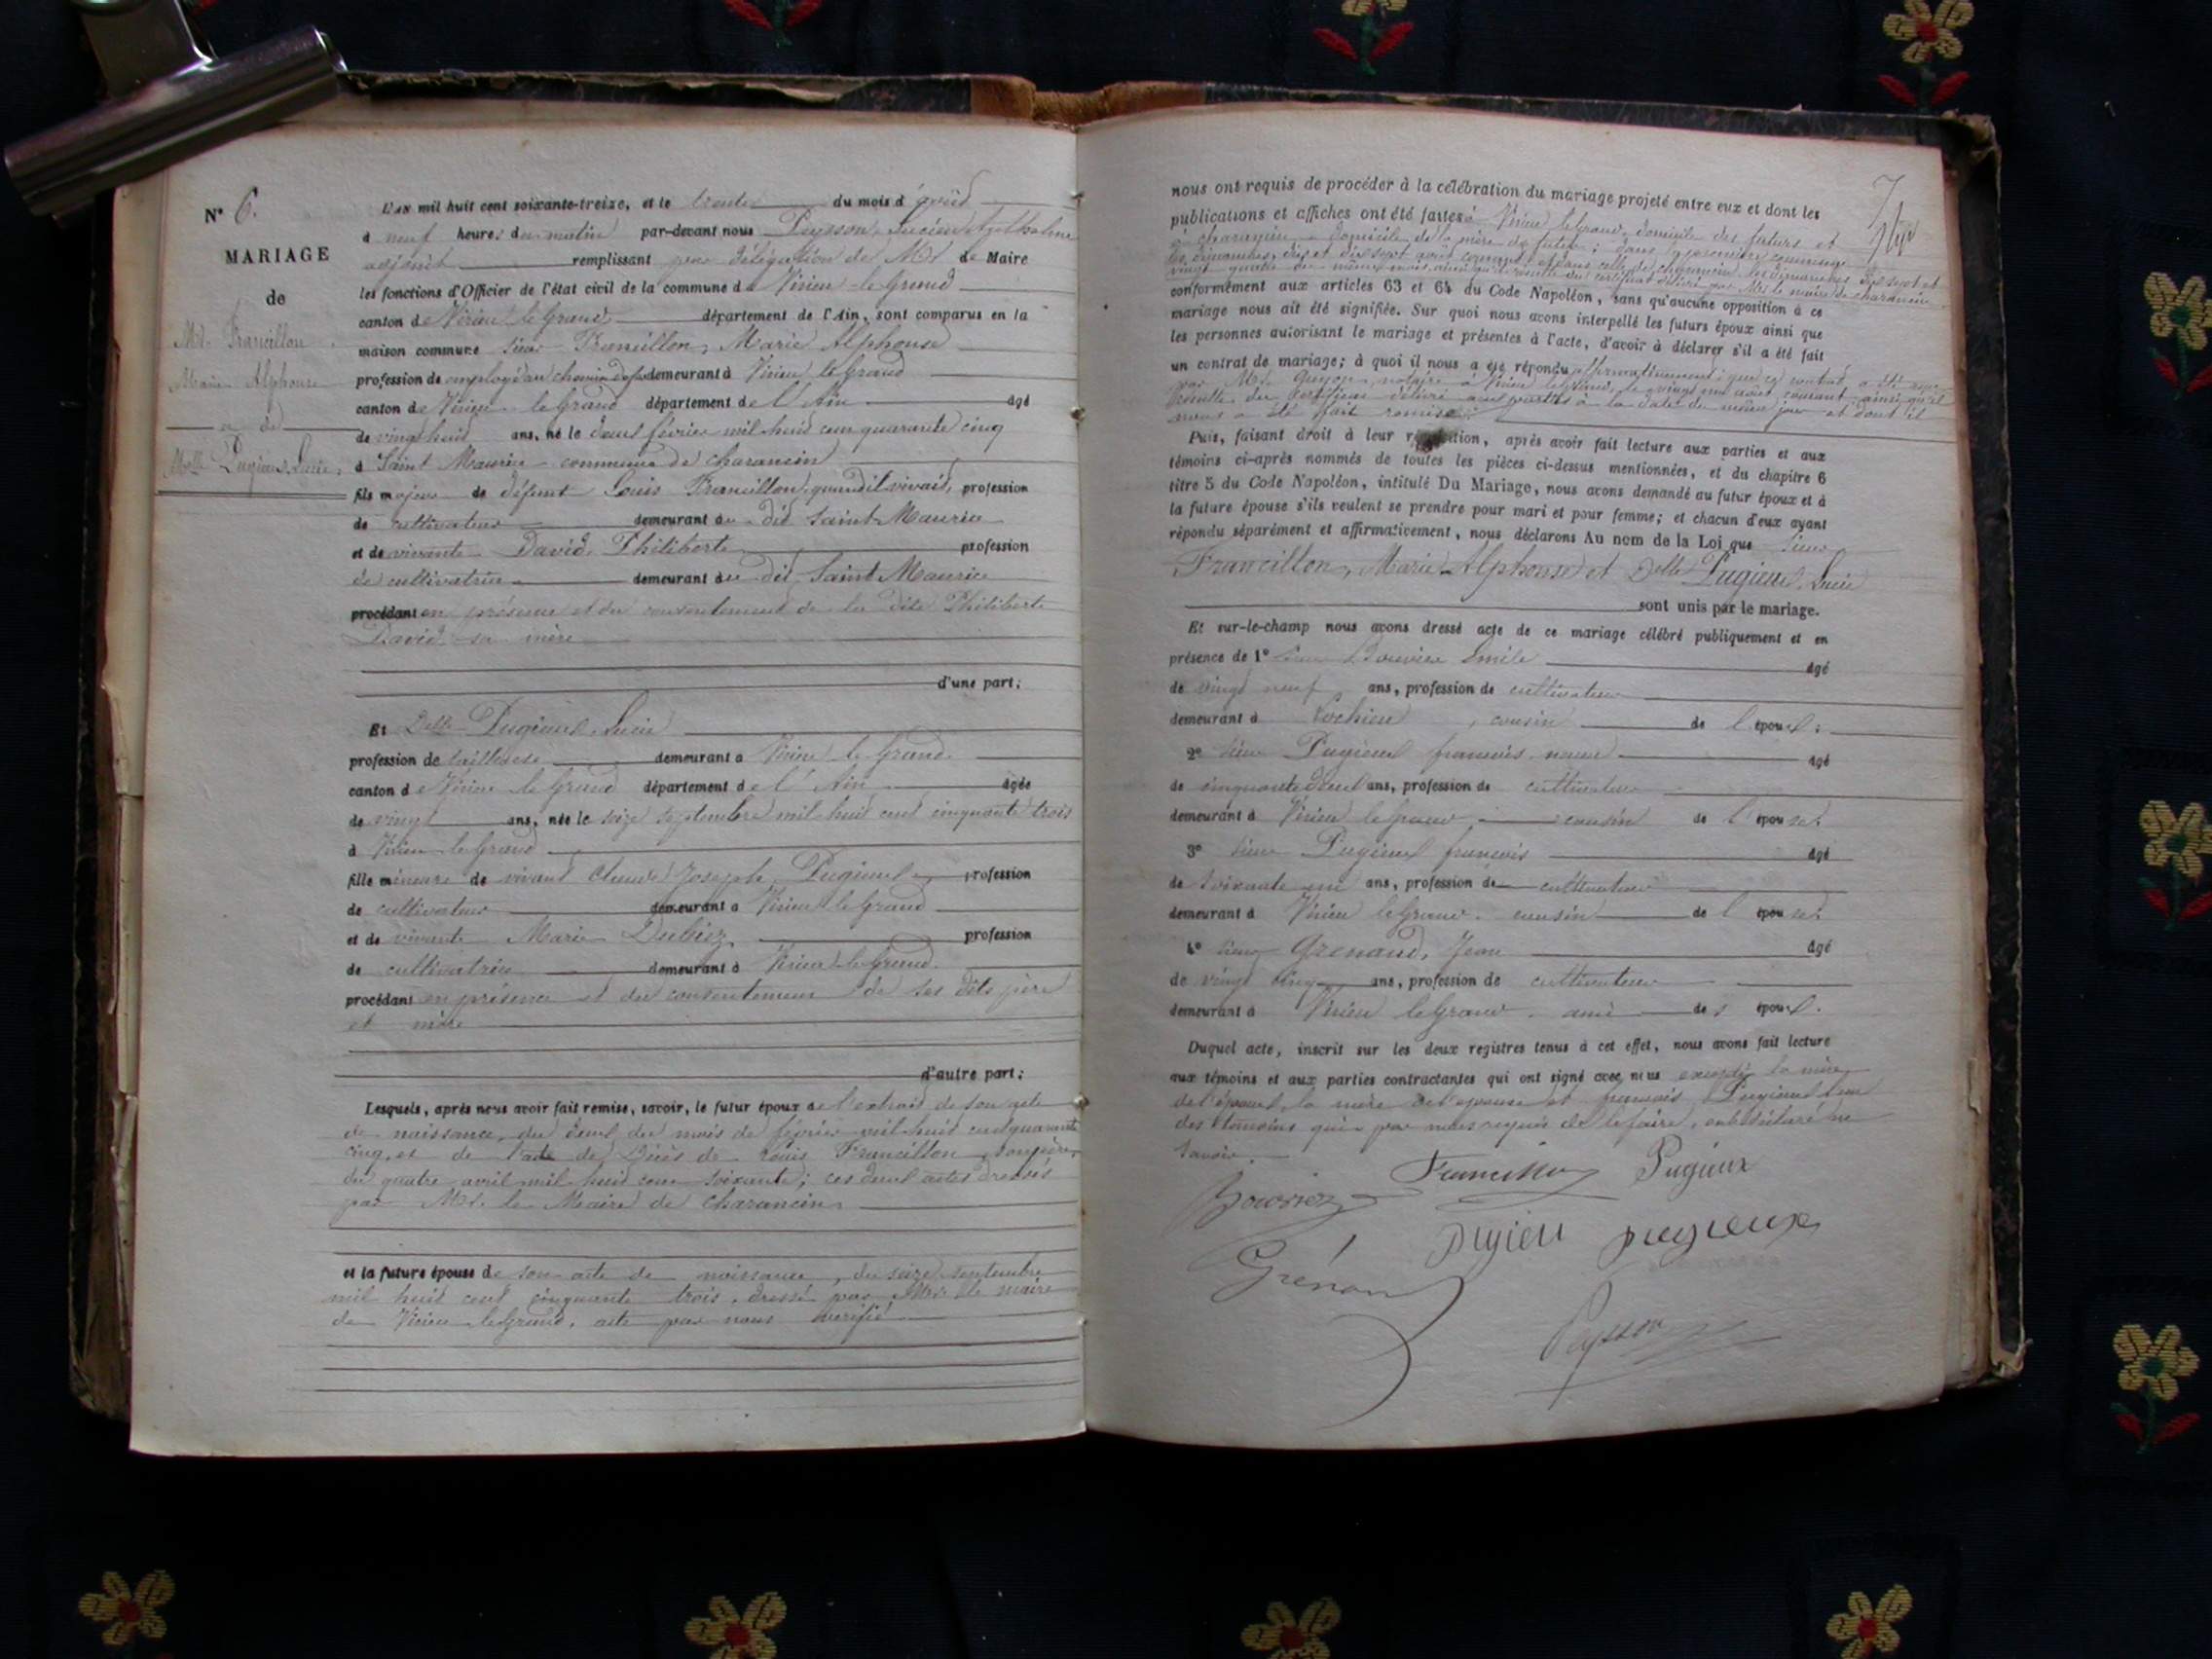 N° 6.
MARIAGE
de
Mr. Francillon
Marie Alphonse
et de
Melle Pugieux Lucie
L'an mil huit cent soixante-treize, et le trente du mois d'août
à neuf heures du matin par-devant nous Peysson, Lucien Anthelme
adjoint remplissant par délégation de Mr le Maire
les fonctions d'Officier de l'état civil de la commune de Virieu-le-Grand
canton de Virieu le Grand département de l'Ain, sont comparus en la
maison commune sieur Francillon, Marie Alphonse
profession de employé au chemin de fer demeurant à Virieu le Grand
canton de Virieu le Grand département de l'Ain âgé
de vingt huit ans, né le deux février mil huit cent quarante cinq
à Saint Maurice commune de Charancin
fils majeur de défunt Louis Francillon, quand il vivait, profession
de cultivateur demeurant au dit Saint Maurice
et de vivante David, Philiberte profession
de cultivatrice demeurant au dit Saint Maurice
procédant en présence et du consentement de la dite Philiberte
David sa mère
d'une part;
Et Delle Pugieux, Lucie
profession de tailleuse demeurant à Virieu le Grand
canton de Virieu le Grand département de l'Ain âgée
de vingt ans, née le seize septembre mil huit cent cinquante trois
à Virieu le Grand
fille mineure de vivant Claude Joseph Pugieux profession
de cultivateur demeurant à Virieu le Grand
et de vivante Marie profession
de cultivatrice demeurant à Virieu le Grand
procédant en présence et du consentement de ses dits père
et mère
d'autre part;
Lesquels, après nous avoir fait remise, savoir, le futur époux de l'extrait de son acte
de naissance, du deux du mois de février mil huit cent quarante
cinq, et de l'acte de décès de Louis Francillon, son père,
du quatre avril mil huit cent soixante; ces deux actes dressés
par Mr. le Maire de Charancin
et la future épouse de son acte de naissance, du seize septembre
mil huit cent cinquante trois, dressé par Mr. le maire
de Virieu le Grand, acte par nous vérifié
7
nous ont requis de procéder à la célébration du mariage projeté entre eux et dont les
publications et affiches ont été faites à Virieu le Grand, domicile des futurs et
à Charancin domicile de la mère du futur; dans la première commune
les dimanches dix et dix sept août courant, et dans celle de Charancin les dimanches dix sept et
vingt quatre du même mois, ainsi qu'il résulte du certificat délivré par Mr. le maire de Charancin
conformément aux articles 63 et 64 du Code Napoléon, sans qu'aucune opposition à ce
mariage nous ait été signifiée. Sur quoi nous avons interpellé les futurs époux ainsi que
les personnes autorisant le mariage et présentes à l'acte, d'avoir à déclarer s'il a été fait
un contrat de mariage; à quoi il nous a été répondu affirmativement; que ce contrat a été reçu
par Mr. Guyon, notaire à Virieu le Grand, le vingt un août courant ainsi qu'il
résulte du certificat délivré aux parties à la date du même jour et dont il
nous a été fait remise
Puis, faisant droit à leur réquisition, après avoir fait lecture aux parties et aux
témoins ci-après nommés de toutes les pièces ci-dessus mentionnées, et du chapitre 6
titre 5 du Code Napoléon, intitulé Du Mariage, nous avons demandé au futur époux et à
la future épouse s'ils veulent se prendre pour mari et pour femme; et chacun d'eux ayant
répondu séparément et affirmativement, nous déclarons Au nom de la Loi que sieur
Francillon, Marie Alphonse et Delle Pugieux, Lucie
sont unis par le mariage.
Et sur-le-champ nous avons dressé acte de ce mariage célébré publiquement et en
présence de 1° sieur Bouvier Emile âgé
de vingt neuf ans, profession de cultivateur
demeurant à Vochieu, cousin de l'époux;
2° sieur Pugieux françois, âgé
de cinquante deux ans, profession de cultivateur
demeurant à Virieu le Grand, cousin de l'épouse;
3° sieur Pugieux françois âgé
de soixante un ans, profession de cultivateur
demeurant à Virieu le Grand, cousin de l'épouse;
4° sieur Grenaud, Jean âgé
de vingt cinq ans, profession de cultivateur
demeurant à Virieu le Grand, ami des époux.
Duquel acte, inscrit sur les deux registres tenus à cet effet, nous avons fait lecture
aux témoins et aux parties contractantes qui ont signé avec nous excepté la mère
de l'époux, la mère de l'épouse et françois Pugieux l'un
des témoins qui par nous requis de le faire, ont déclaré ne
savoir.
Francillon Pugieux
Bouvier
pugieu pugieux
Grénaud
Peysson